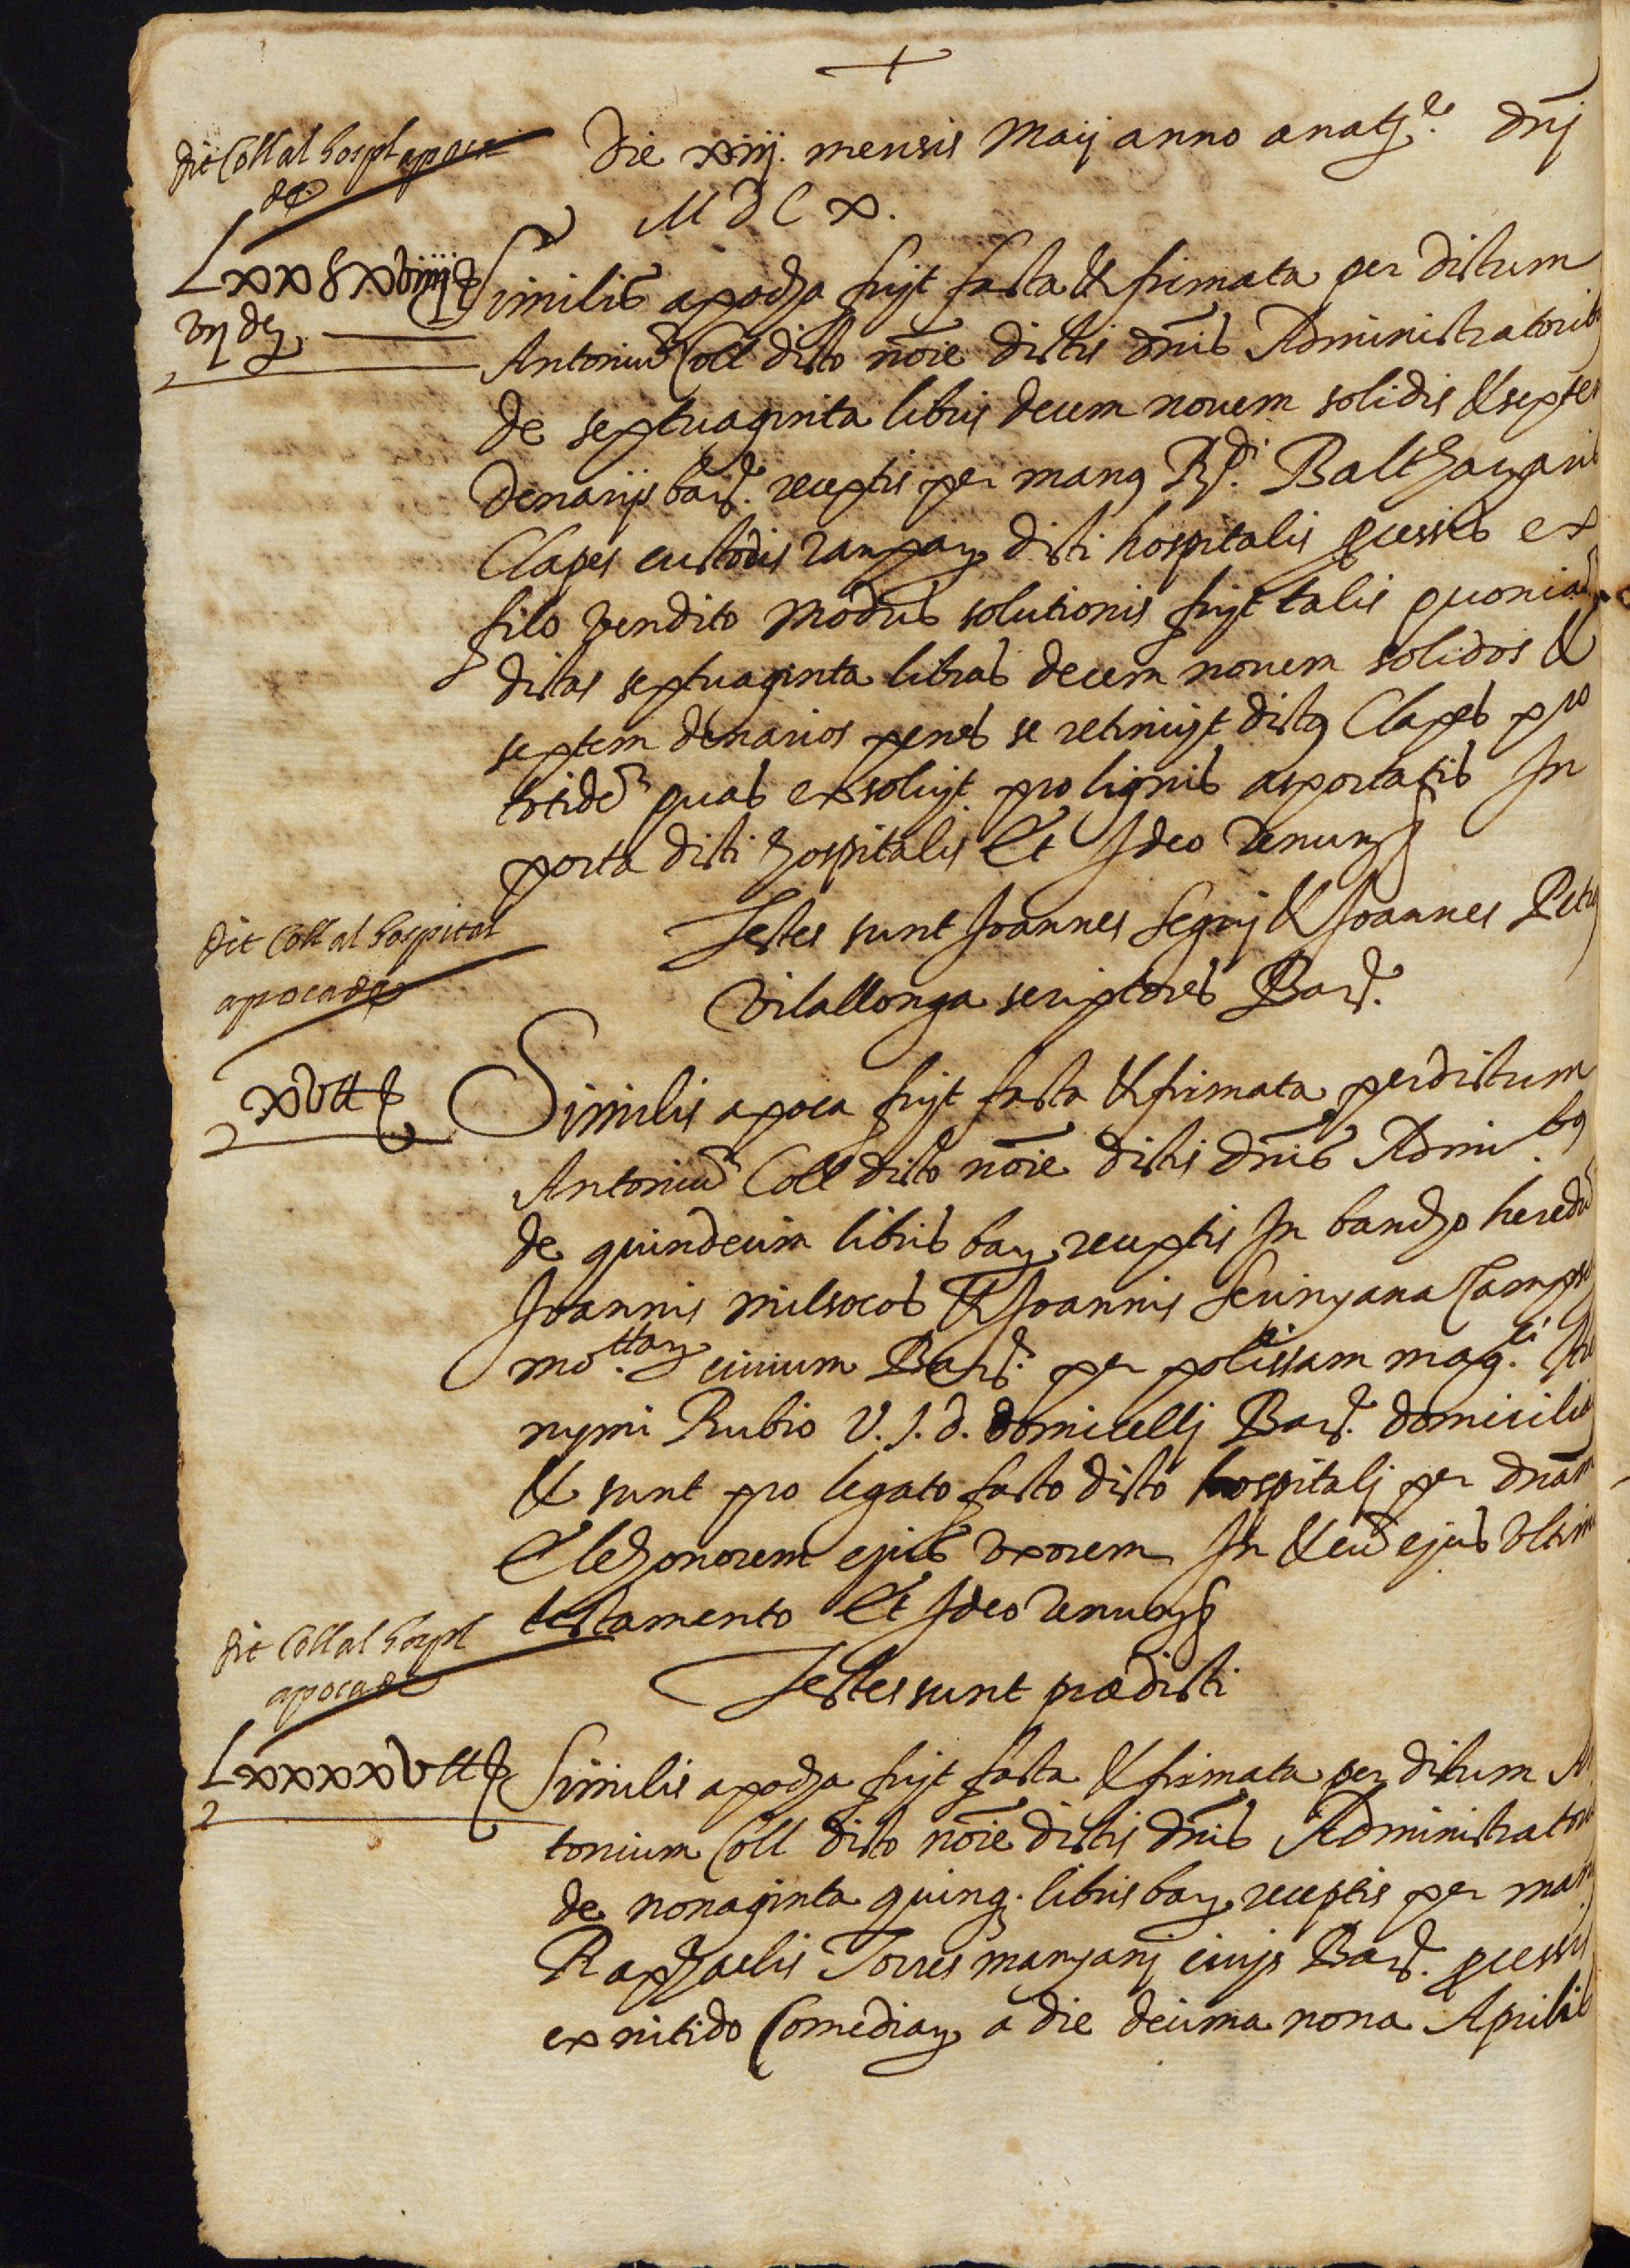 Die xiiij. mensis Maij anno a natte. dnj
MDCx.
dit Coll al hospl apoca
de
Lxx ș xviiij ß
vij ds
Similis apocha fuyt facta & firmata per dictum
Antoniũ Coll dicto noĩe dictis dnis Administratorib9
de septuaginta libris decem novem solidis & septem
denarijs barĉ. receptis per man9 Rdi. Balthazaris
Clapes custodis rauparum dicti hospitalis processis ex
filo vendito modus solutionis fuyt talis quoniam
dictas septuaginta libras decem novem solidos &
septem denarios penes se retinuyt dict9 Clapes pro
totidẽ quas exsoluyt pro lignis asportatis In
porta dicti hospitalis Et Ideo Renuns
Testes sunt Joannes Seguj & Joannes Petrus
Vilallonga scriptores Barĉ.
dit Coll al hospital
apoca de
xv tt ß
Similis apoca fuyt facta & firmata per dictum
Antoniũ Coll dicto noĩe dictis dnis Admi.b9
de quindecim libris bar receptis In bancho heredũ
Joannis milsocos & Joannis Scrinyana Campso
mo.ttar civium Barĉ. per polissam mag.ci Hie
nymi Rubio V.J.d. domicellj Barĉ. domicilia
& sunt pro legato facto dicto hospitalj per dnam
Elehonorem ejus vxorem In & cũ ejus vltim
testamento Et Ideo Renuns
Testes sunt prædicti
dit Coll al hospl
apoca de
Lxxxxv tt ß
Similis apocha fuyt facta & firmata per dictum An
tonium Coll dicto noĩe dictis dnis Administratori
de nonaginta quinq. libris bar receptis per man9
Raphaelis Torres manyanj civis Barĉ. processis
ex nitido Comediarum a die decima nona Aprilis